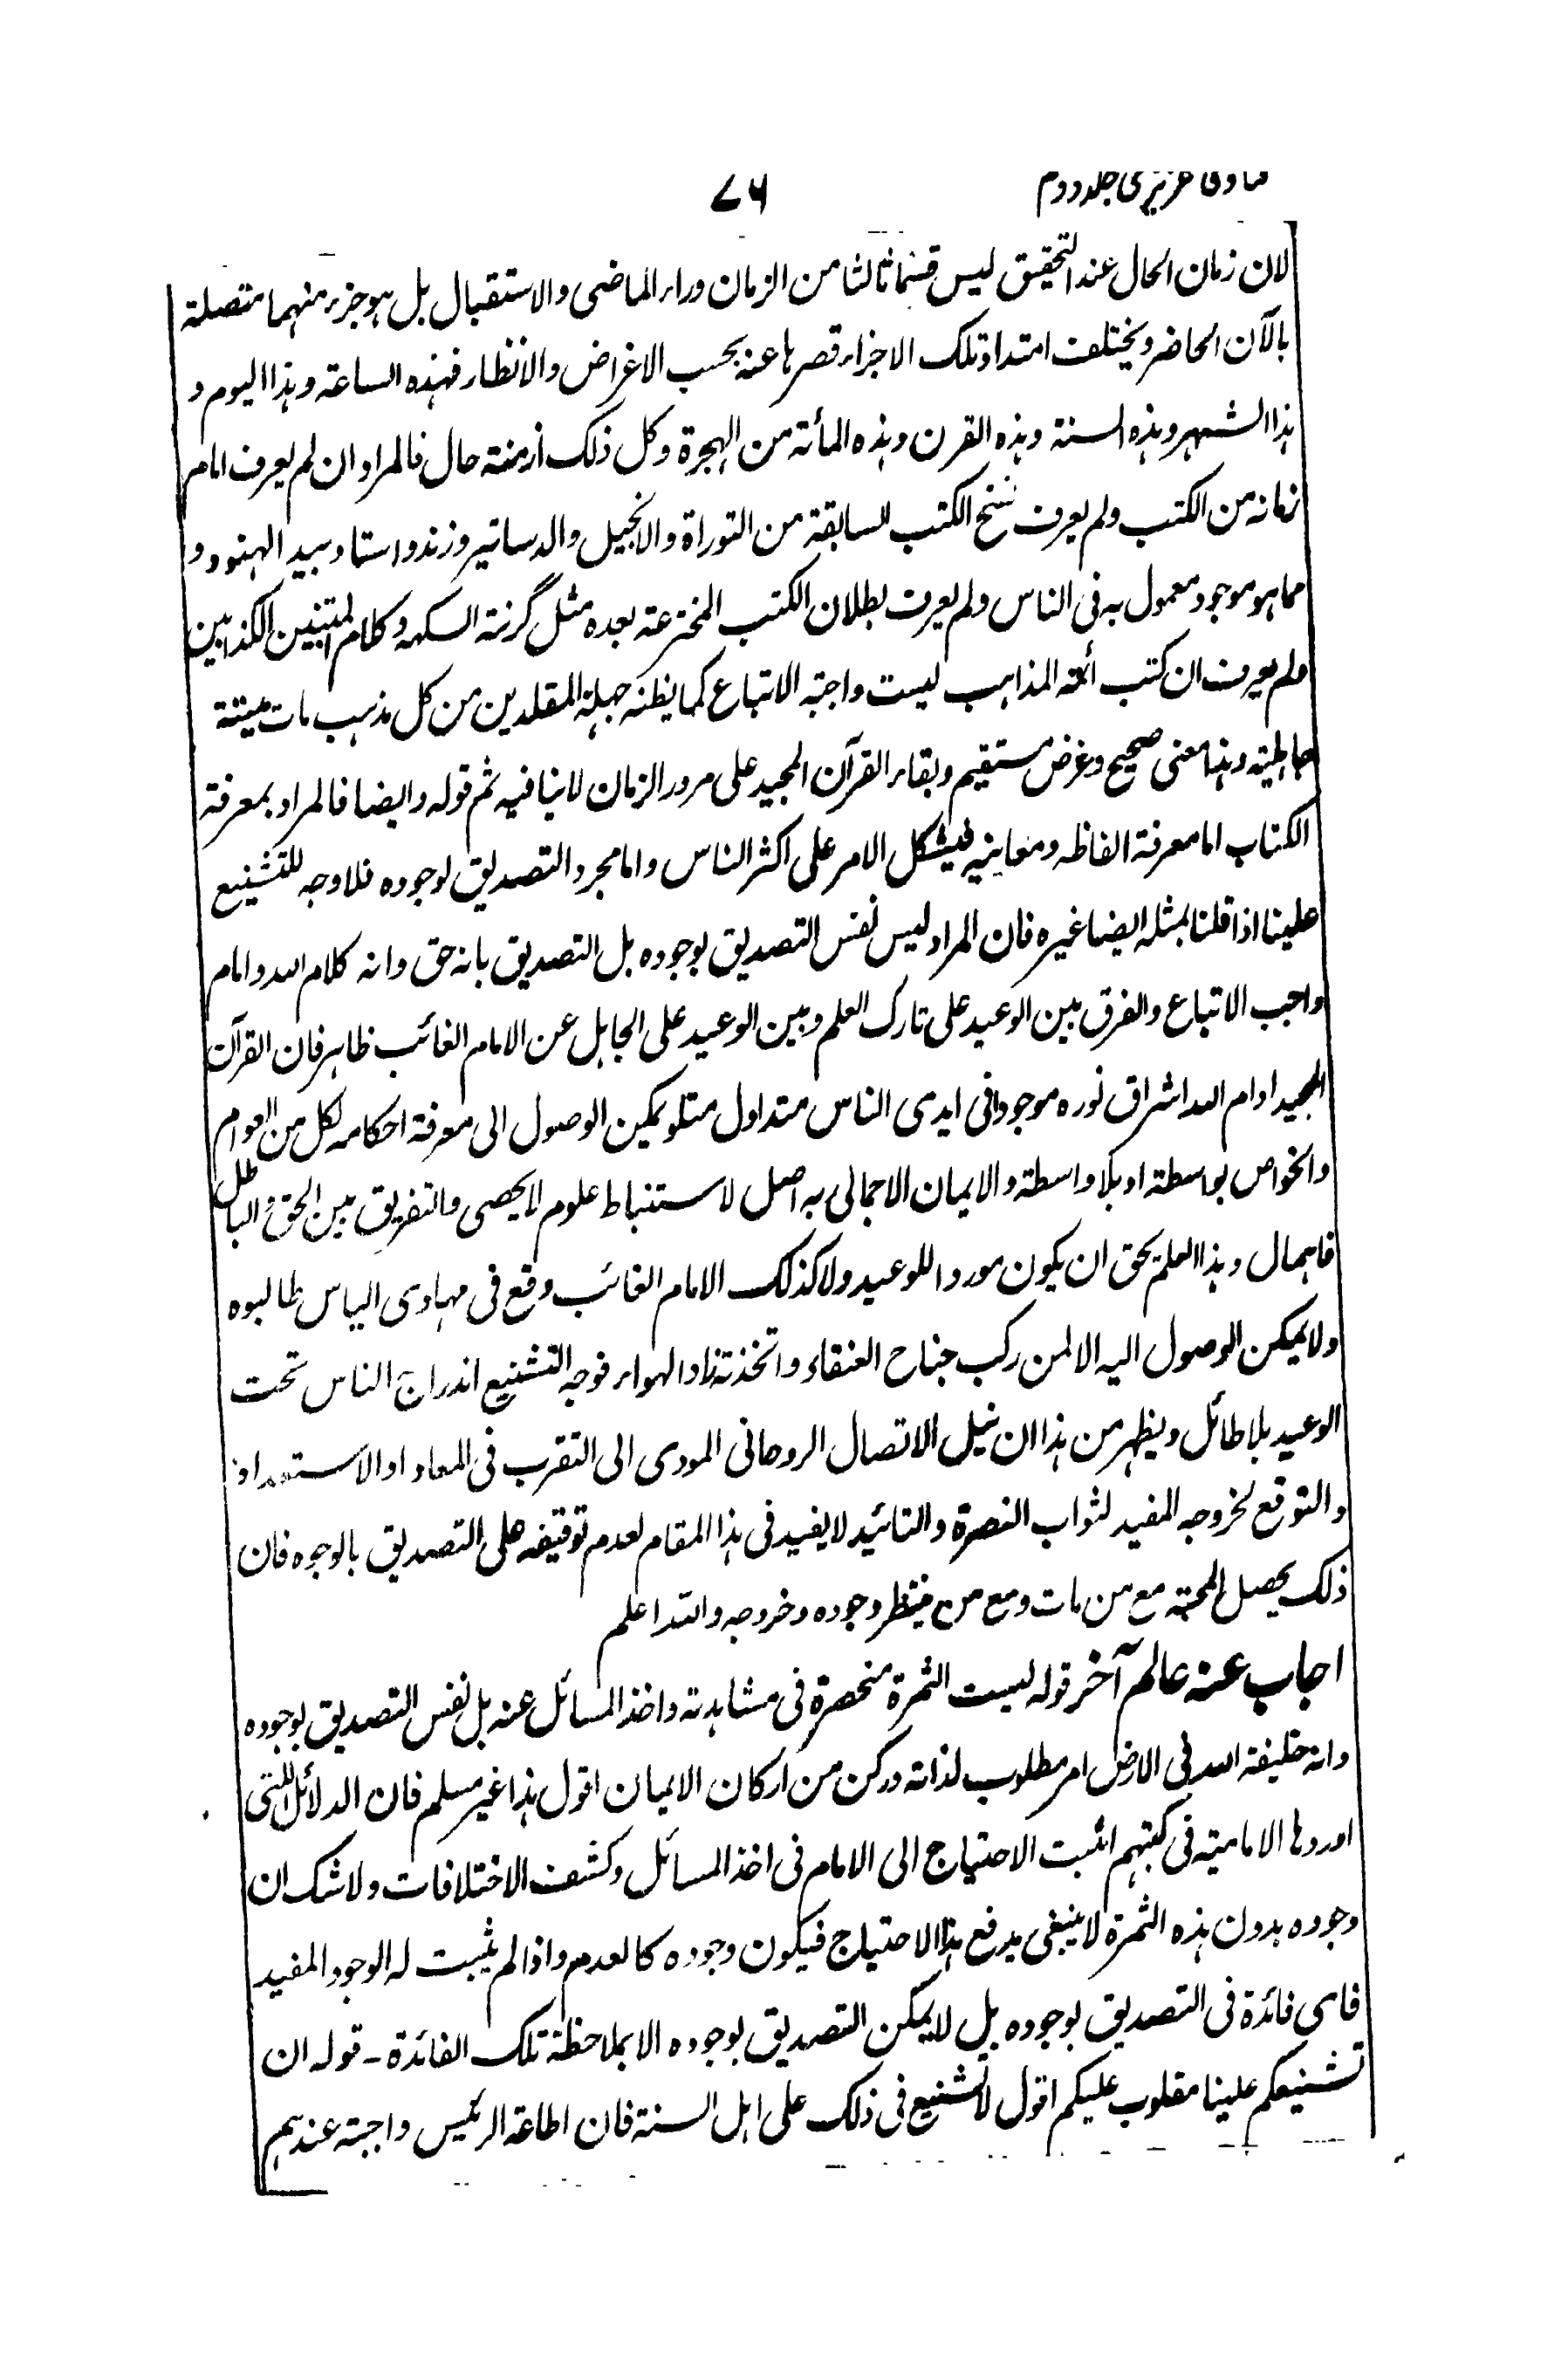 فتاوی عزیزی جلد دوم ۷۶
لان زمان الحال عند التحقیق لیس قسما ثالثا من الزمان وراء الماضی والاستقبال بل ہو جزء منہما متصلة
بالآن الحاضر ویختلف امتداد تلک الاجزاء قصرہا عنہ بحسب الاغراض والانظار فہذہ الساعة وہذا الیوم و
ہذا الشہر وہذہ السنة وہذہ القرن وہذہ المأتة من الہجرة وکل ذلک أزمنة حال فالمراد ان لم یعرف امام
زمانہ من الکتب ولم یعرف نسخ الکتب السابقة من التوراة والانجیل والدساتیر وزند واستا وبید الہنود و
مما ہو موجود معمول بہ فی الناس ولم یعرف بطلان الکتب المخترعة بعدہ مثل گرنتہ السکہہ وکلام المتنبین الکذابین
ولم یعرف ان کتب أئمة المذاہب لیست واجبة الاتباع کما یظنہ جہلة المقلدین من کل مذہب مات میتة
جاہلیة وہذا معنی صحیح وغرض مستقیم وبقاء القرآن المجید علی مرور الزمان لا ینافیہ ثم قولہ وایضا فالمراد بمعرفة
الکتاب اما معرفة الفاظہ ومعانیہ فیشکل الامر علی اکثر الناس واما مجرد التصدیق لوجودہ فلا وجہ للتشنیع
علینا اذا قلنا بمثلہ ایضا غیرہ فان المراد لیس نفس التصدیق بوجودہ بل التصدیق بانہ حق وانہ کلام اللہ وامام
واجب الاتباع والفرق بین الوعید علی تارک العلم وبین الوعید علی الجاہل عن الامام الغائب ظاہر فان القرآن
المجید ادام اللہ اشراق نورہ موجود فی ایدی الناس متداول متلو یمکن الوصول الی معرفة احکامہ لکل من العوام
والخواص بواسطة او بلا واسطة والایمان الاجمالی بہ اصل لاستنباط علوم لا یحصی والتفریق بین الحق و الباطل
فاہمال وہذا العلم یحق ان یکون موردا للوعید ولا کذلک الامام الغائب وقع فی مہاوی الیاس طالبوہ
ولا یمکن الوصول الیہ الا لمن رکب جناح العنقاء واتخذتہ زاد الہواء فوجہ التشنیع اندراج الناس تحت
الوعید بلا طائل ویظہر من ہذا ان نیل الاتصال الروحانی المودی الی التقرب فی المعاد او الاستمداد
والتوقع لخروجہ المفید لثواب النصرة والتائید لا یفید فی ہذا المقام لعدم توقیفہ علی التصدیق بالوجوہ فان
ذلک یحصل المحبة مع من مات ومع من ینتظر وجودہ وخروجہ واللہ اعلم
اجاب عنہ عالم آخر قولہ لیست الثمرة منحصرة فی مشاہدتہ واخذ المسائل عنہ بل نفس التصدیق بوجودہ
وانہ خلیفة اللہ فی الارض امر مطلوب لذاتہ ورکن من ارکان الایمان اقول ہذا غیر مسلم فان الدلائل اللتی
اوردہا الامامیة فی کتبہم اثبت الاحتیاج الی الامام فی اخذ المسائل وکشف الاختلافات ولا شک ان
وجودہ بدون ہذہ الثمرة لا ینبغی یدفع ہذا الاحتیاج فیکون وجودہ کالعدم واذا لم یثبت لہ الوجود المفید
فای فائدة فی التصدیق بوجودہ بل لا یمکن التصدیق بوجودہ الا بملاحظة تلک الفائدة ـ قولہ ان
تشنیعکم علینا مقلوب علیکم اقول لا تشنیع فی ذلک علی اہل السنة فان اطاعة الرئیس واجبة عندہم